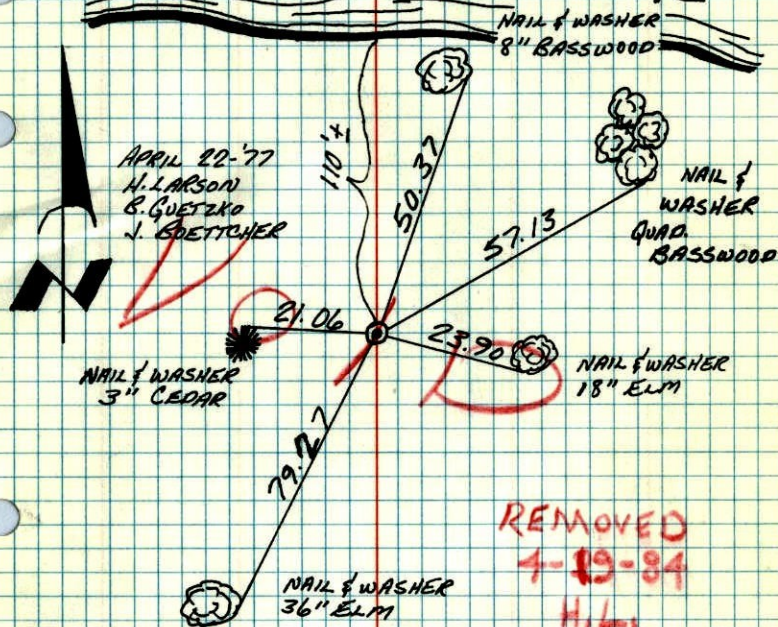 NAIL & WASHER
8" BASSWOOD
APRIL 22-'77
H. LARSON
B. GUETZKO
J. BOETTCHER
110'±
50.37
57.13
NAIL &
WASHER
QUAD.
BASSWOOD
N
21.06
23.90
NAIL & WASHER
3" CEDAR
NAIL & WASHER
18" ELM
79.27
NAIL & WASHER
36" ELM
REMOVED
4-19-84